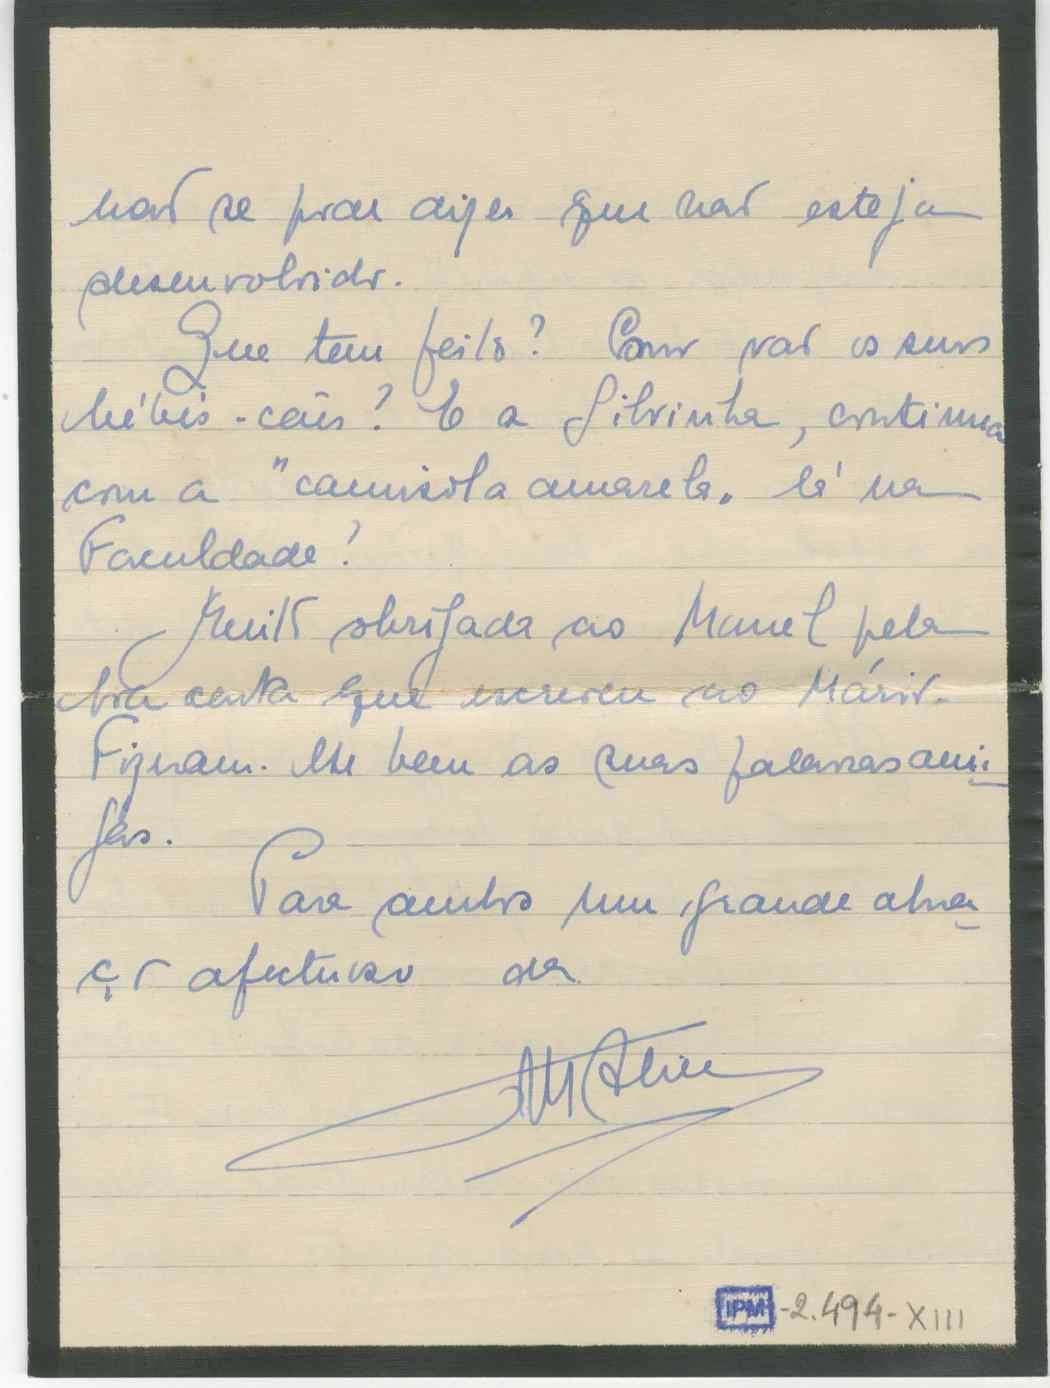 não se pode dizer que não esteja
desenvolvido.
Que tem feito? Como vão os seus
bébés-cães? E a Silvinha, continua
com a "camisola amarela" lá na
Faculdade?
Muito obrigada ao Manel pela
boa carta que escreveu ao Mário.
Fizeram-lhe bem as suas palavras ami-
gas.
Para ambos um grande abra-
ço afectuoso da
M Alice
IPM -2.494-XIII